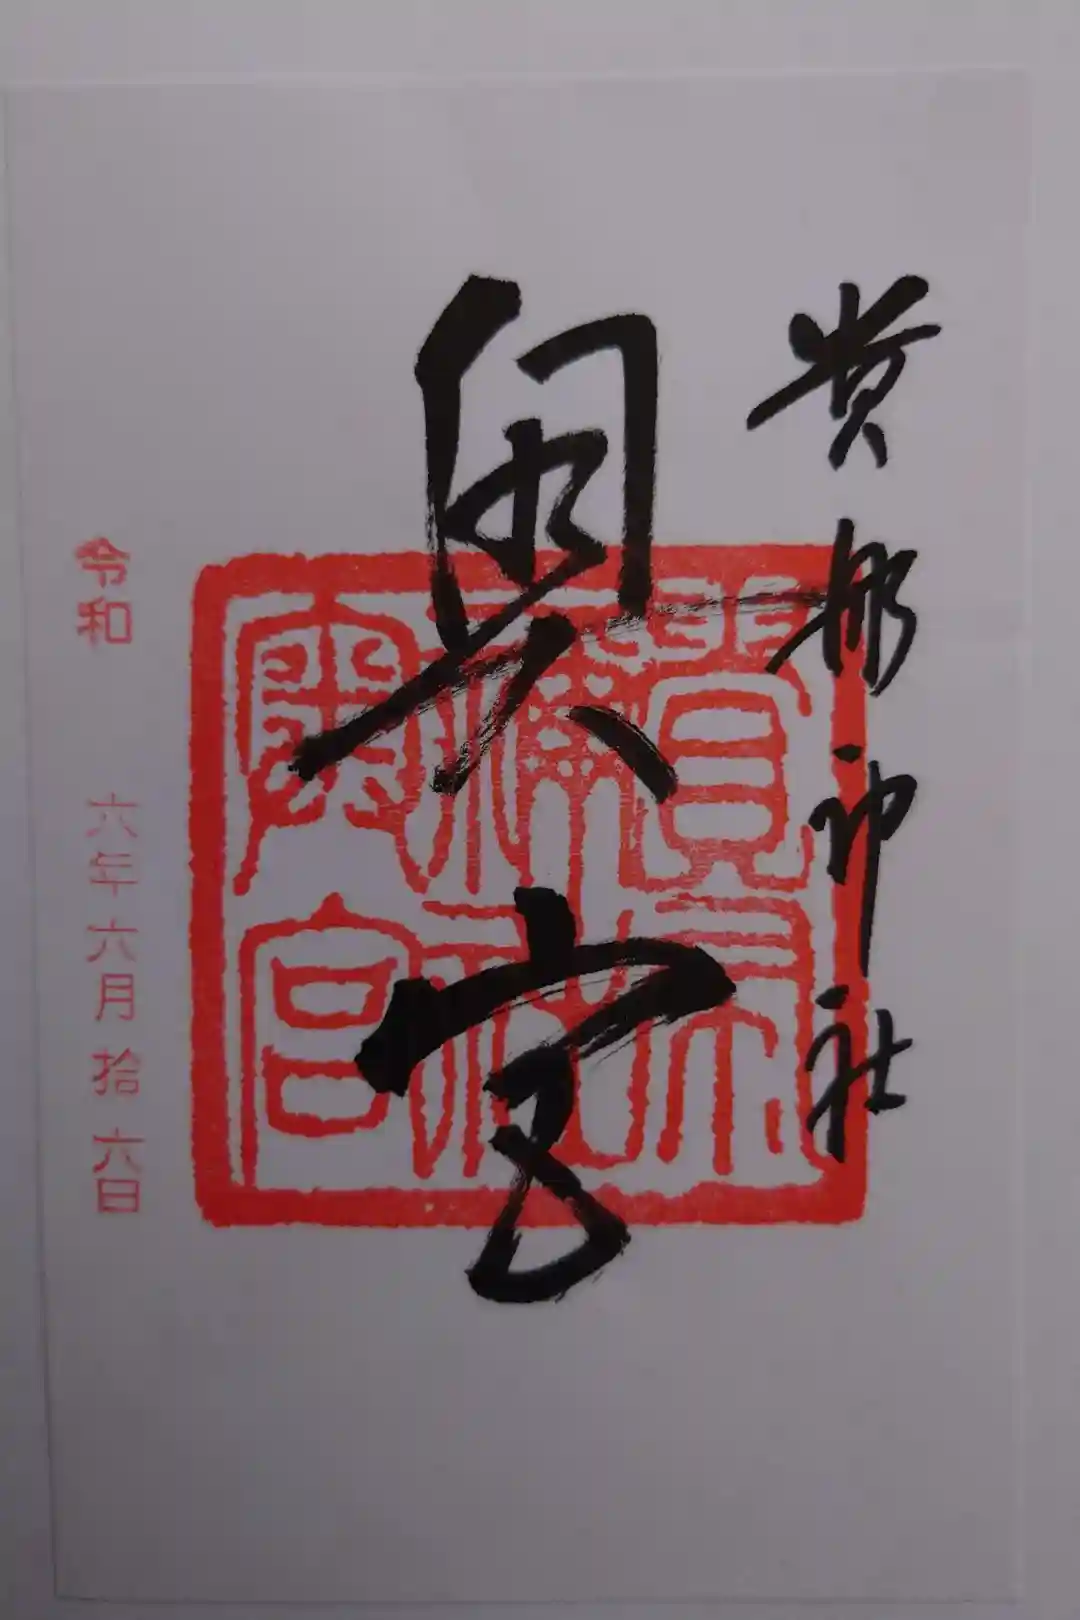 貴船神社
奥宮
貴布
禰社
奥宮
令和 六年六月拾六日